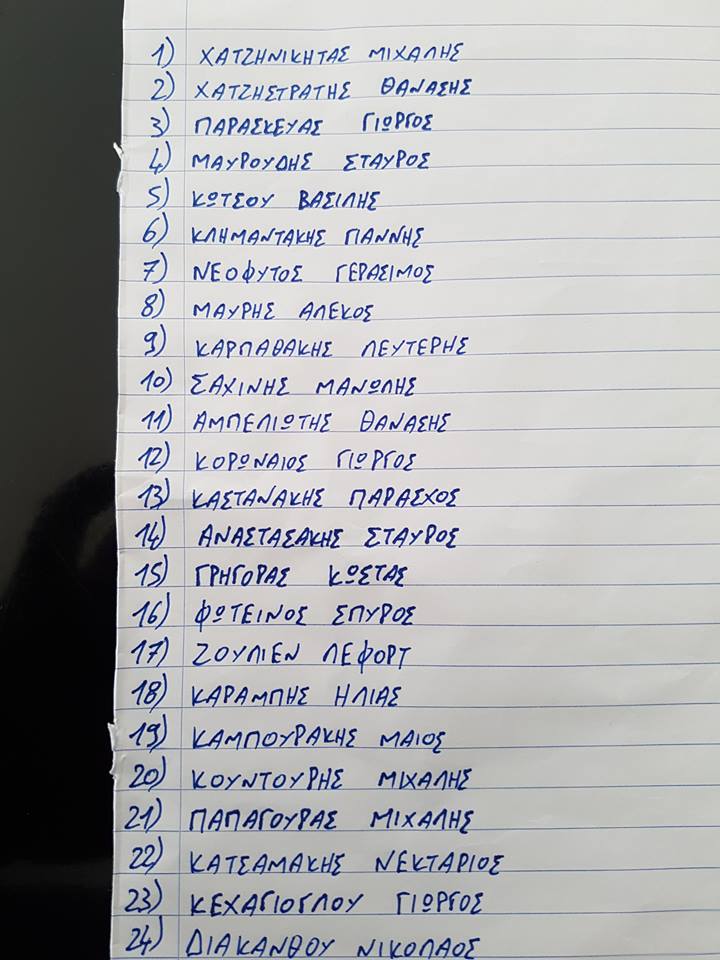 1) ΧΑΤΖΗΝΙΚΗΤΑΣ ΜΙΧΑΛΗΣ
2) ΧΑΤΖΗΣΤΡΑΤΗΣ ΘΑΝΑΣΗΣ
3) ΠΑΡΑΣΚΕΥΑΣ ΓΙΩΡΓΟΣ
4) ΜΑΥΡΟΥΔΗΣ ΣΤΑΥΡΟΣ
5) ΚΩΤΣΟΥ ΒΑΣΙΛΗΣ
6) ΚΛΗΜΑΝΤΑΚΗΣ ΓΙΑΝΝΗΣ
7) ΝΕΟΦΥΤΟΣ ΓΕΡΑΣΙΜΟΣ
8) ΜΑΥΡΗΣ ΑΛΕΚΟΣ
9) ΚΑΡΠΑΘΑΚΗΣ ΛΕΥΤΕΡΗΣ
10) ΣΑΧΙΝΗΣ ΜΑΝΩΛΗΣ
11) ΑΜΠΕΛΙΩΤΗΣ ΘΑΝΑΣΗΣ
12) ΚΟΡΩΝΑΙΟΣ ΓΙΩΡΓΟΣ
13) ΚΑΣΤΑΝΑΚΗΣ ΠΑΡΑΣΧΟΣ
14) ΑΝΑΣΤΑΣΑΚΗΣ ΣΤΑΥΡΟΣ
15) ΓΡΗΓΟΡΑΣ ΚΩΣΤΑΣ
16) ΦΩΤΕΙΝΟΣ ΣΠΥΡΟΣ
17) ΖΟΥΛΙΕΝ ΛΕΦΟΡΤ
18) ΚΑΡΑΜΠΗΣ ΗΛΙΑΣ
19) ΚΑΜΠΟΥΡΑΚΗΣ ΜΑΙΟΣ
20) ΚΟΥΝΤΟΥΡΗΣ ΜΙΧΑΛΗΣ
21) ΠΑΠΑΓΟΥΡΑΣ ΜΙΧΑΛΗΣ
22) ΚΑΤΣΑΜΑΚΗΣ ΝΕΚΤΑΡΙΟΣ
23) ΚΕΧΑΓΙΟΓΛΟΥ ΓΙΩΡΓΟΣ
24) ΔΙΑΚΑΝΘΟΥ ΝΙΚΟΛΑΟΣ